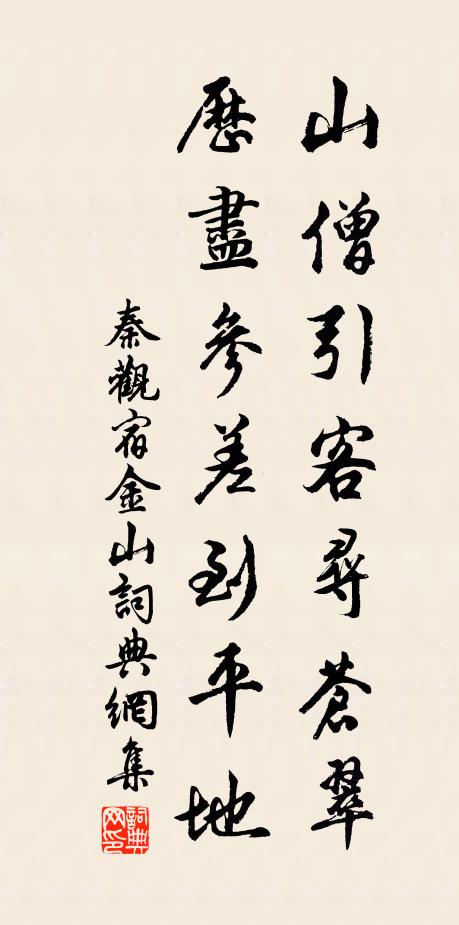 山僧引客尋蒼翠
歷盡參差到平地
秦觀宿金山詞典網集
詞典網印